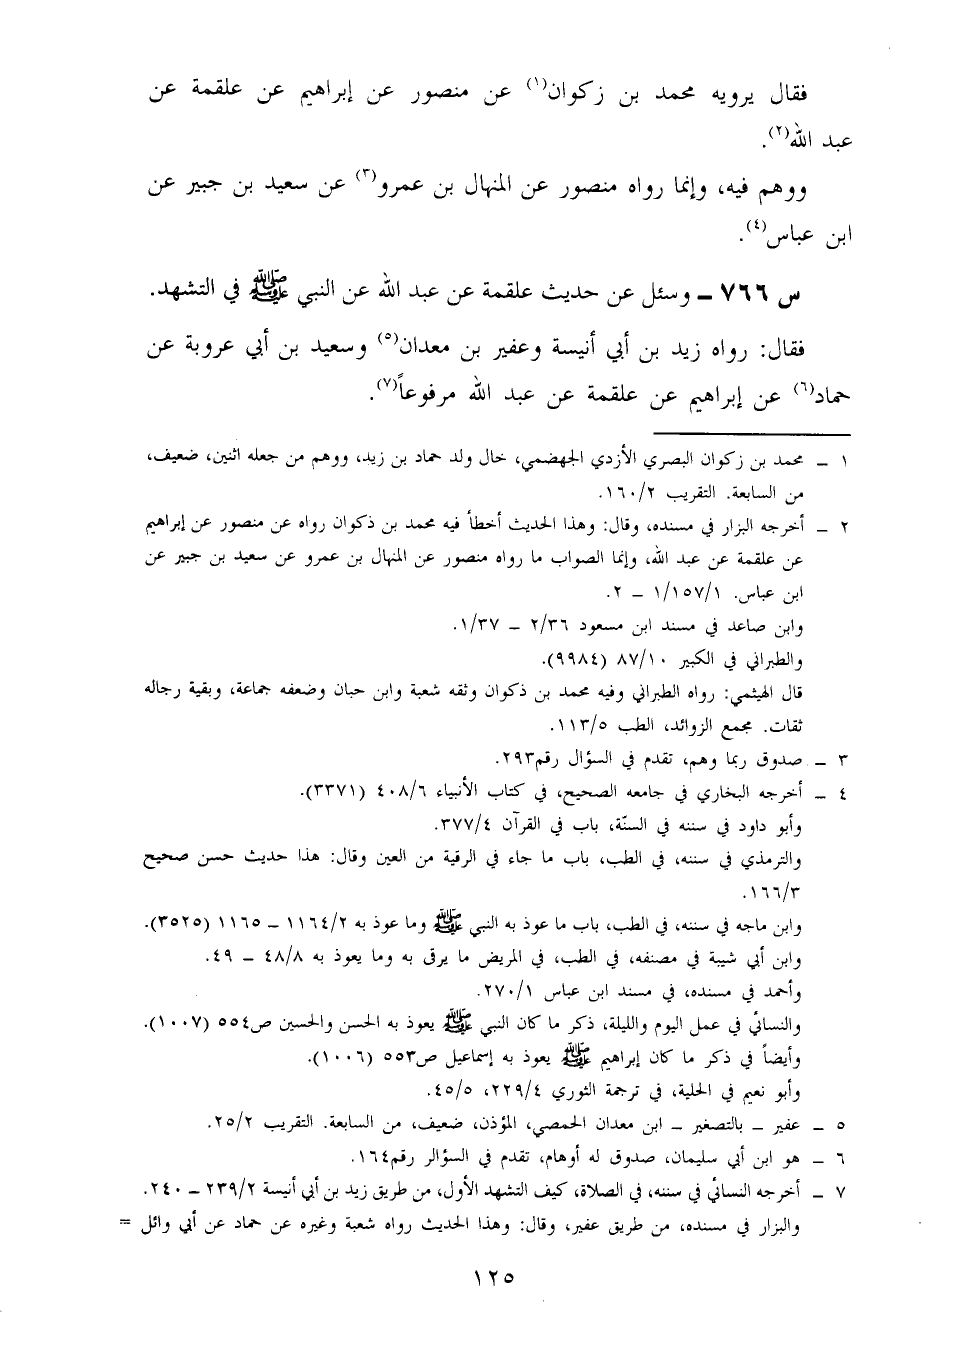 فقال يرويه محمد بن زكوان(١) عن منصور عن إبراهيم عن علقمة عن
عبد الله(٢).
ووهم فيه، وإنما رواه منصور عن المنهال بن عمرو(٣) عن سعيد بن جبير عن
ابن عباس(٤).
س ٧٦٦ ــ وسئل عن حديث علقمة عن عبد الله عن النبي ﷺ في التشهد.
فقال: رواه زيد بن أبي أنيسة وعفير بن معدان(٥) وسعيد بن أبي عروبة عن
حماد(٦) عن إبراهيم عن علقمة عن عبد الله مرفوعاً(٧).
١ ــ محمد بن زكوان البصري الأزدي الجهضمي، خال ولد حماد بن زيد، ووهم من جعله اثنين، ضعيف،
من السابعة. التقريب ١٦٠/٢.
٢ ــ أخرجه البزار في مسنده، وقال: وهذا الحديث أخطأ فيه محمد بن ذكوان رواه عن منصور عن إبراهيم
عن علقمة عن عبد الله، وإنما الصواب ما رواه منصور عن المنهال بن عمرو عن سعيد بن جبير عن
ابن عباس. ١/١٥٧/١ ــ ٢.
وابن صاعد في مسند ابن مسعود ٢/٣٦ ــ ١/٣٧.
والطبراني في الكبير ٨٧/١٠ (٩٩٨٤).
قال الهيثمي: رواه الطبراني وفيه محمد بن ذكوان وثقه شعبة وابن حبان وضعفه جماعة، وبقية رجاله
ثقات. مجمع الزوائد، الطب ١١٣/٥.
٣ ــ صدوق ربما وهم، تقدم في السؤال رقم٢٩٣.
٤ ــ أخرجه البخاري في جامعه الصحيح، في كتاب الأنبياء ٤٠٨/٦ (٣٣٧١).
وأبو داود في سننه في السنّة، باب في القرآن ٣٧٧/٤.
والترمذي في سننه، في الطب، باب ما جاء في الرقية من العين وقال: هذا حديث حسن صحيح
١٦٦/٣.
وابن ماجه في سننه، في الطب، باب ما عوذ به النبي ﷺ وما عوذ به ١١٦٤/٢ ــ ١١٦٥ (٣٥٢٥).
وابن أبي شيبة في مصنفه، في الطب، في المريض ما يرقى به وما يعوذ به ٤٨/٨ ــ ٤٩.
وأحمد في مسنده، في مسند ابن عباس ٢٧٠/١.
والنسائي في عمل اليوم والليلة، ذكر ما كان النبي ﷺ يعوذ به الحسن والحسين ص٥٥٤ (١٠٠٧).
وأيضاً في ذكر ما كان إبراهيم ﷺ يعوذ به إسماعيل ص٥٥٣ (١٠٠٦).
وأبو نعيم في الحلية، في ترجمة الثوري ٢٢٩/٤، ٤٥/٥.
٥ ــ عفير ــ بالتصغير ــ ابن معدان الحمصي، المؤذن، ضعيف، من السابعة. التقريب ٢٥/٢.
٦ ــ هو ابن أبي سليمان، صدوق له أوهام، تقدم في السؤالر رقم١٦٤.
٧ ــ أخرجه النسائي في سننه، في الصلاة، كيف التشهد الأول، من طريق زيد بن أبي أنيسة ٢٣٩/٢ ــ ٢٤٠.
والبزار في مسنده، من طريق عفير، وقال: وهذا الحديث رواه شعبة وغيره عن حماد عن أبي وائل =
١٢٥